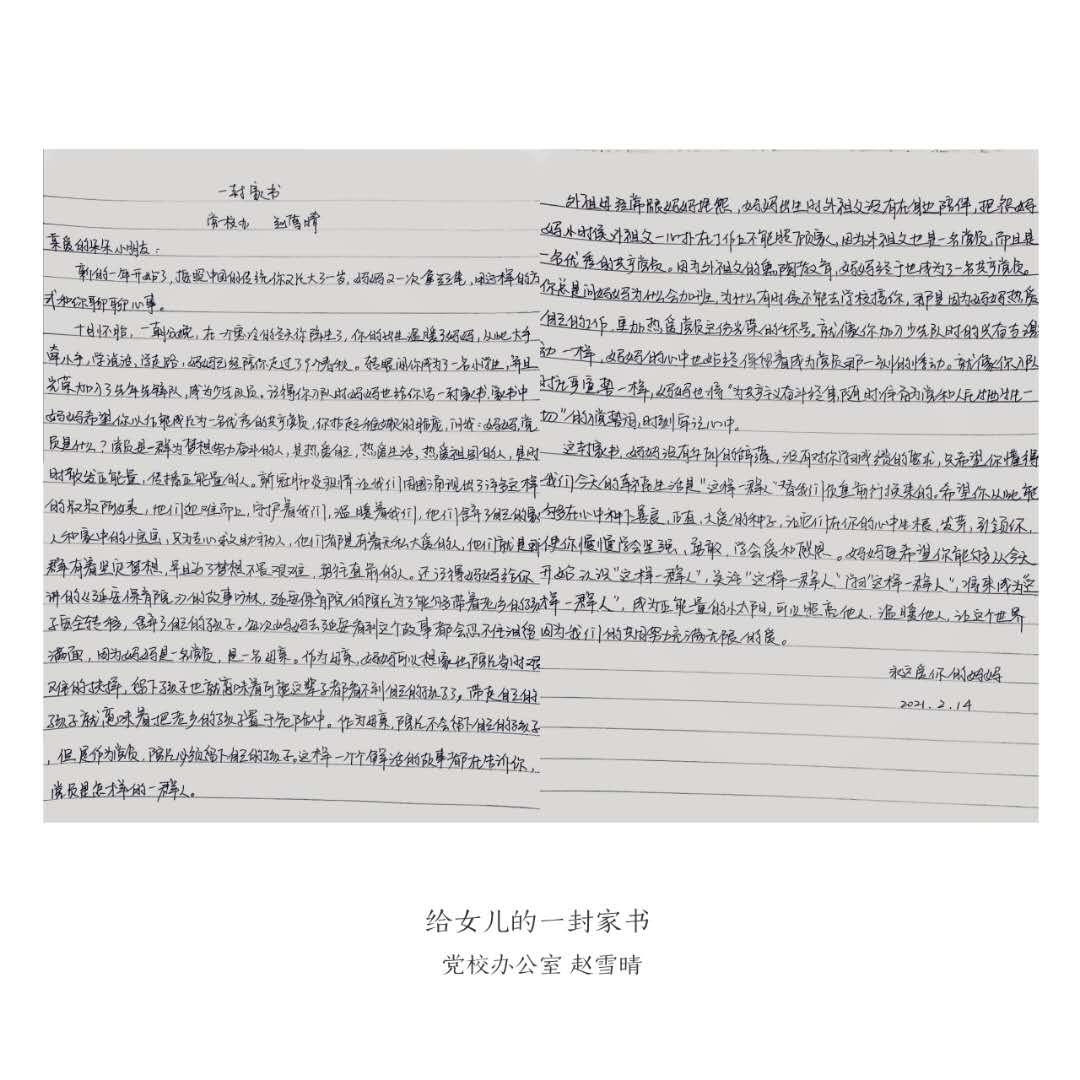 一封家书
党校办 赵雪晴
亲爱的朵朵小朋友：
新的一年开始了，按照中国的传统你又长大了一岁，妈妈又一次拿起笔，用这样的方
式和你聊聊心事。
十月怀胎，一朝分娩，在一个寒冷的冬天你降生了，你的出生温暖了妈妈，从此大手
牵小手，学说话，学走路，妈妈已经陪你走过了个春秋。转眼间你成为了一名小学生，并且
光荣加入了少年先锋队，成为少先队员。记得你入队时妈妈也给你写一封家书，家书中
妈妈希望你以后能成长为一名优秀的共产党员，你抬起稚嫩的脸庞，问我：妈妈，党
员是什么？党员是一群为梦想努力奋斗的人，是热爱自己，热爱生活，热爱祖国的人，是时
时散发正能量，传播正能量的人。新冠肺炎疫情让我们周围涌现出了许多这样
的叔叔阿姨，他们迎难而上，守护着我们，温暖着我们，他们舍弃了自己的家
人和家中的小宝宝，只为去心救助病人，他们都是有着无私大爱的人，他们就是那
群有着坚定梦想，并且为了梦想不畏艰难，勇往直前的人。还记得妈妈给你
讲的《延安保育院》的故事吗，延安保育院的院长为了能够带着老乡的孩
子安全转移，舍弃了自己的孩子。每次妈妈去延安看到这个故事都会忍不住泪流
满面，因为妈妈是一名党员，是一名母亲。作为母亲，妈妈可以想象出院长当时艰
难的抉择，留下孩子也就意味着可能这辈子都看不到自己的孩子了，带走自己的
孩子就意味着把老乡的孩子置于危险中。作为母亲，院长不会留下自己的孩子
，但是作为党员，院长必须留下自己的孩子。这样一个个鲜活的故事都在告诉你，
党员是怎样的一群人。
外祖母经常跟妈妈抱怨，妈妈出生时外祖父没有在身边陪伴，抱怨妈
妈小时候外祖父一心扑在工作上不能照顾家人，因为外祖父也是一名党员，而且是
一名优秀的共产党员。因为外祖父的熏陶教育，妈妈终于也成为了一名共产党员。
你总是问妈妈为什么会加班，为什么有时候不能去学校接你，那是因为妈妈热爱
自己的工作，更加热爱党员这份光荣的称号。就像你加入少先队时的兴奋与激
动一样，妈妈的心中也始终保留着成为党员那一刻的悸动。就像你入队
时庄严宣誓一样，妈妈也将“为共产主义奋斗终身，随时准备为党和人民牺牲一
切”的入党誓词，时刻牢记心中。
这封家书，妈妈没有华丽的辞藻，没有对你学习成绩的要求，只希望你懂得
我们今天的幸福生活是“这样一群人”替我们负重前行换来的。希望你从此能
够在心中种下善良，正直，大爱的种子，让它们在你的心中生根，发芽，引领你，
使你慢慢学会坚强，勇敢，学会爱和感恩。妈妈更希望你能够从今天
开始认识“这样一群人”，关注“这样一群人”，学习“这样一群人”，将来成为“这
样一群人”，成为正能量的小太阳，可以照亮他人，温暖他人，让这个世界
因为我们的共同努力充满无限的爱。
永远爱你的妈妈
2021.2.14
给女儿的一封家书
党校办公室 赵雪晴